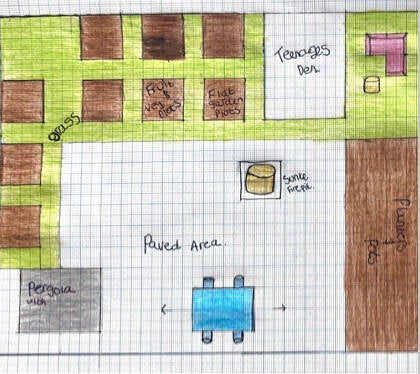 Teenages
Den
Fruit
&
veg
plots
Flat
garden
Plots
grass
Sunke
Firepit.
Planters
+
Pots
Paved Area.
Pergola
with